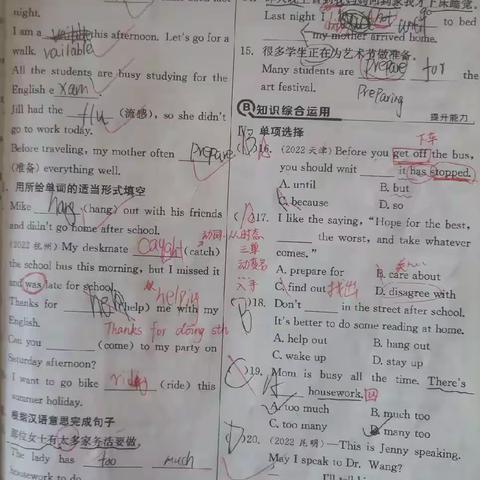 night.
I am a vailable this afternoon. Let's go for a
walk. vailable
All the students are busy studying for the
English e xam
Jill had the flu (流感), so she didn't
go to work today.
Before traveling, my mother often prepare
(准备) everything well.
用所给单词的适当形式填空
Mike hang (hang) out with his friends
and didn't go home after school.
(2022 杭州) My deskmate caught (catch)
the school bus this morning, but I missed it
and was late for school.
Thanks for help (help) me with my
helping
English.
Thanks for doing sth
Can you (come) to my party on
Saturday afternoon?
I want to go bike riding (ride) this
summer holiday.
根据汉语意思完成句子
那位女士有太多家务活要做。
The lady has too much
housework to do.
Last night I until to bed
my mother arrived home.
15. 很多学生正在为艺术节做准备。
Many students are prepare for the
art festival. Preparing
B 知识综合运用 提升能力
Ⅳ. 单项选择
下车
16. (2022 天津) Before you get off the bus,
you should wait it has stopped.
A. until B. but
C. because D. so
17. I like the saying, "Hope for the best,
the worst, and take whatever
comes."
动词 从时态
三单
动名
入手
A. prepare for B. care about
C. find out 找出 D. disagree with
18. Don't in the street after school.
It's better to do some reading at home.
A. help out B. hang out
C. wake up D. stay up
19. Mom is busy all the time. There's
housework.
A. too much B. much too
C. too many D. many too
20. (2022 昆明) —This is Jenny speaking.
May I speak to Dr. Wang?